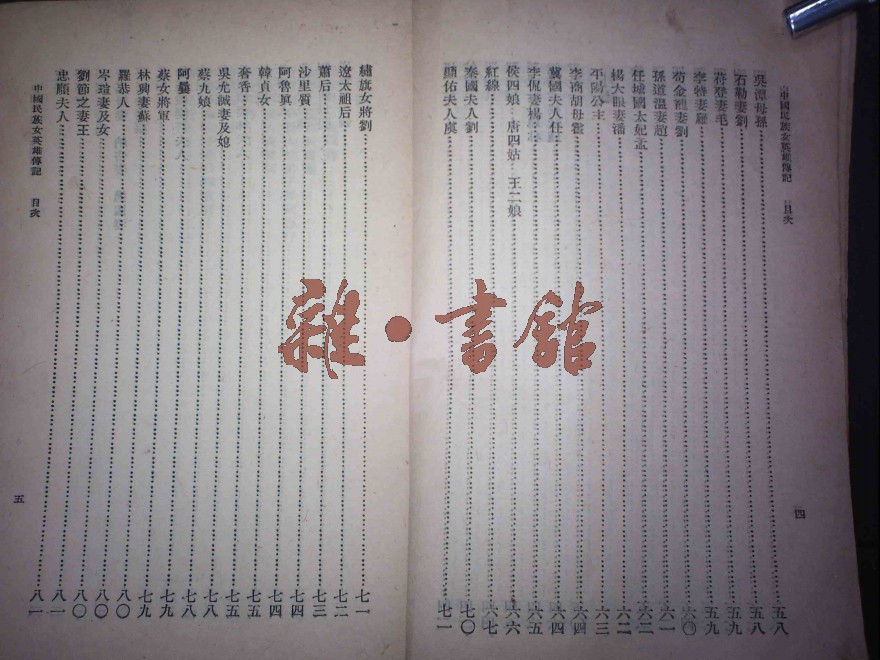 中國民族女英雄傳記 目次
吳潭母孫 五八
石勒妻劉 五八
苻登妻毛 五九
李特妻羅 五九
荀金龍妻劉 六〇
孫道溫妻趙 六一
任城國太妃孟 六二
楊大眼妻潘 六二
平陽公主 六三
李湍胡母霍 六四
冀國夫人任 六四
李侃妻楊 六五
侯四娘 唐四姑 王二娘 六六
紅線 六七
秦國夫人劉 七〇
顯佑夫人虞 七一
四
繡旗女將劉 七一
遼太祖后 七二
蕭后 七三
沙里質 七四
阿魯真 七四
韓貞女 七四
奢香 七五
吳允誠妻及媳 七五
蔡九娘 七八
阿曩 七八
蔡女將軍 七九
林興妻蘇 七九
羅恭人 八〇
岑瑄妻及女 八〇
劉節之妻王 八〇
忠順夫人 八一
中國民族女英雄傳記 目次
五
雜·書館